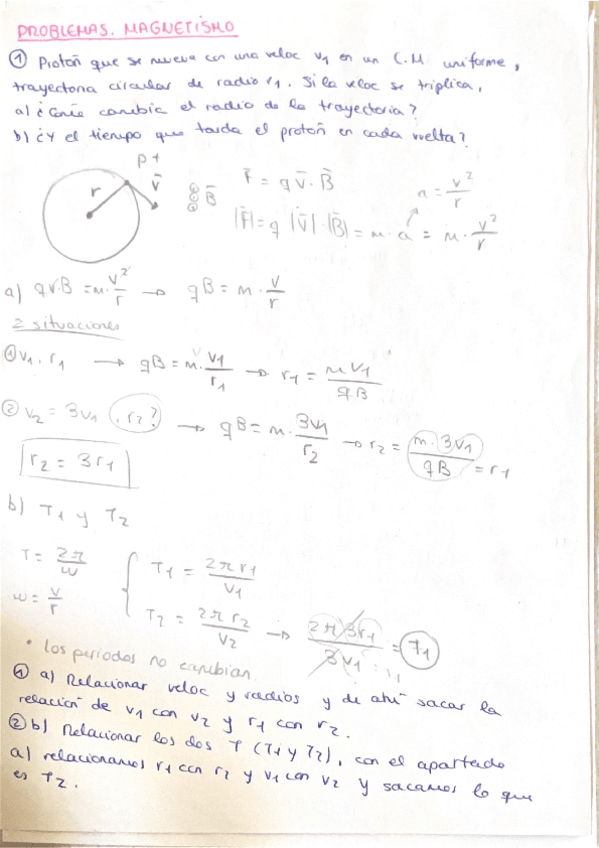 PROBLEMAS. MAGNETISMO
① Protoñ que se mueve con una veloc v₁ en un C.M. uniforme,
trayectoria circular de radio r₁. Si la veloc se triplica,
a) ¿Cómo cambia el radio de la trayectoria?
b) ¿Y el tiempo que tarda el protoñ en cada vuelta?
p+
r
v⃗
B⃗
F⃗ = q v⃗ · B⃗
a = v²/r
|F⃗| = q |v⃗| · |B⃗| = m · a = m · v²/r
a) qv·B = m · v²/r → qB = m · v/r
2 situaciones
① v₁, r₁ → qB = m · v₁/r₁ → r₁ = m v₁/qB
② v₂ = 3v₁, r₂? → qB = m · 3v₁/r₂ → r₂ = m · 3v₁/qB = r₁
r₂ = 3r₁
b) T₁ y T₂
T = 2π/w
w = v/r
T₁ = 2π r₁/v₁
T₂ = 2π r₂/v₂ → 2π 3r₁/3v₁ = T₁
• los periodos no cambian
① a) Relacionar veloc y radios y de ahí sacar la
relación de v₁ con v₂ y r₁ con r₂.
② b) Relacionar los dos T (T₁ y T₂), con el apartado
a) relacionamos r₁ con r₂ y v₁ con v₂ y sacamos lo que
es T₂.